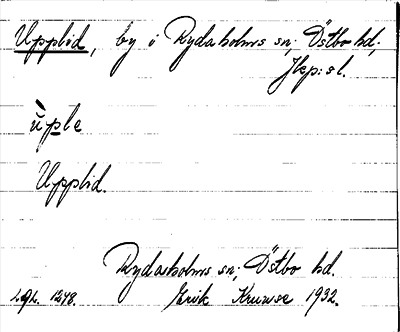 Upplid, by i Rydaholms sn; Östbo hd;
Jkp:s l.
ùple
Upplid.
Rydaholms sn; Östbo hd.
Lgh. 1278. Erik Kruuse 1932.